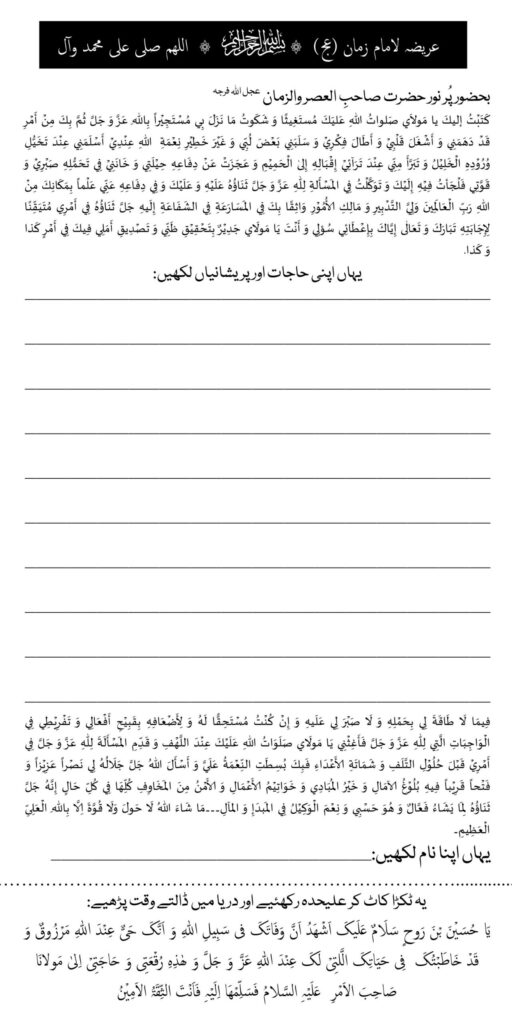 عریضہ لامام زمان (عج) ❁ بسم الله الرحمن الرحیم ❁ اللهم صلی علی محمد وآل
بحضور پُر نور حضرت صاحب العصر والزمان عجل اللہ فرجہ
كَتَبْتُ إليكَ يا مَولاي صَلواتُ اللهِ عَليكَ مُستَغيثًا وَ شَكَوتُ مَا نَزَلَ بِي مُستَجِيْراً بِاللهِ عَزَّ وَ جَلَّ ثُمَّ بِكَ مِنْ أَمْرٍ
قَدْ دَهَمَنِي وَ أَشْغَلَ قَلْبِيْ وَ أَطَالَ فِكْرِيْ وَ سَلَبَنِي بَعْضَ لُبِّي وَ غَيَّرَ خَطِيْرَ نِعْمَةِ اللهِ عِنْدِيْ أَسْلَمَنِي عِنْدَ تَخَيُّلِ
وُرُوْدِهِ الْخَلِيْلُ وَ تَبَرَّأَ مِنِّي عِنْدَ تَرَائِيْ إِقْبَالِهِ إِلَىَّ الْحَمِيْمِ وَ عَجَزَتْ عَنْ دِفَاعِهِ حِيْلَتِي وَ خَانَنِيْ فِي تَحَمُّلِهِ صَبْرِيْ وَ
قُوَّتِي فَلْجَأتُ فِيْهِ إِلَيْكَ وَ تَوَكَّلْتُ فِي الْمَسْأَلَةِ لِلّهِ عَزَّ وَ جَلَّ ثَنَاؤُهُ عَلَيْهِ وَ عَلَيْكَ وَ فِي دِفَاعِهِ عَنِّي عِلْماً بِمَكَانِكَ مِنْ
اللهِ رَبِّ الْعَالَمِينَ وَلِيِّ التَّدْبِيرِ وَ مَالِكِ الْأُمُوْرِ وَاثِقًا بِكَ فِي الْمَسَارَعَةِ فِي الشَّفَاعَةِ إِلَيهِ جَلَّ ثَنَاؤُهُ فِي أَمْرِي مُتَيَقِّنًا
لِإجَابَتِهِ تَبَارَكَ وَ تَعَالَى إِيَّاكَ بِإِعْطَائِي سُؤلِي وَ أَنْتَ يَا مَولَاي جَدِيْرٌ بِتَحْقِيْقِ ظَنِّي وَ تَصْدِيقِ أَمَلِي فِيكَ فِي أَمْرِ كَذا
وَ كَذا.
یہاں اپنی حاجات اور پریشانیاں لکھیں:
فِيمَا لَا طَاقَةَ لِي بِحَمْلِهِ وَ لَا صَبَرَ لِي عَلَيهِ وَ إِنْ كُنْتُ مُسْتَحِقًّا لَهُ وَ لِأَضْعَافِهِ بِقَبِيْحِ أَفْعَالِي وَ تَفْرِيْطِي فِي
الْوَاجِبَاتِ الَّتِي لِلّهِ عَزَّ وَ جَلَّ فَأَغِثْنِي يَا مَولَاي صَلَوَاتُ اللهِ عَلَيْكَ عِنْدَ اللَّهْفِ وَ قَدِّمِ الْمَسْأَلَةَ لِلّهِ عَزَّ وَ جَلَّ فِي
أَمْرِيْ قَبْلَ حُلُوْلِ التَّلَفِ وَ شَمَاتَةِ الْأَعْدَاءِ فَبِكَ بُسِطَتِ النِّعْمَةُ عَلَيَّ وَ أَسْأَلُ اللهَ جَلَّ جَلَالُهُ لِي نَصْراً عَزِيْزاً وَ
فَتْحاً قَرِيْباً فِيهِ بُلُوْغُ الآمَالِ وَ خَيْرُ الْمَبَادِي وَ خَوَاتِيْمُ الْأَعْمَالِ وَ الأَمْنُ مِنَ المَخَاوِفِ كُلِّهَا فِي كُلِّ حَالٍ إِنَّهُ جَلَّ
ثَنَاؤُهُ لِمَا يَشَاءُ فَعَّالٌ وَ هُوَ حَسْبِي وَ نِعْمَ الْوَكِيْلُ فِي المَبدَإِ وَ الْمَآلِ۔۔۔مَا شَاءَ اللهُ لَا حَولَ وَلَا قُوَّةَ إِلَّا بِاللهِ الْعَلِيِّ
الْعَظِيْمِ۔
یہاں اپنا نام لکھیں:
یہ ٹکڑا کاٹ کر علیحدہ رکھئیے اور دریا میں ڈالتے وقت پڑھیے:
یَا حُسَیْنَ بْنَ رَوحٍ سَلَامٌ عَلَیکَ اَشْهَدُ اَنَّ وَفَاتَکَ فِی سَبِیلِ اللهِ وَ اَنَّکَ حَیٌّ عِنْدَ اللهِ مَرْزُوقٌ وَ
قَدْ خَاطَبْتُکَ فِی حَیَاتِکَ الَّتِی لَکَ عِنْدَ اللهِ عَزَّ وَ جَلَّ وَ هٰذِهِ رُقْعَتِی وَ حَاجَتِی اِلیٰ مَولَانَا
صَاحِبَ الاَمْرِ عَلَیْهِ السَّلَامُ فَسَلِّمْهَا اِلَیْهِ فَاَنْتَ الثِّقَةُ الْاَمِیْنُ